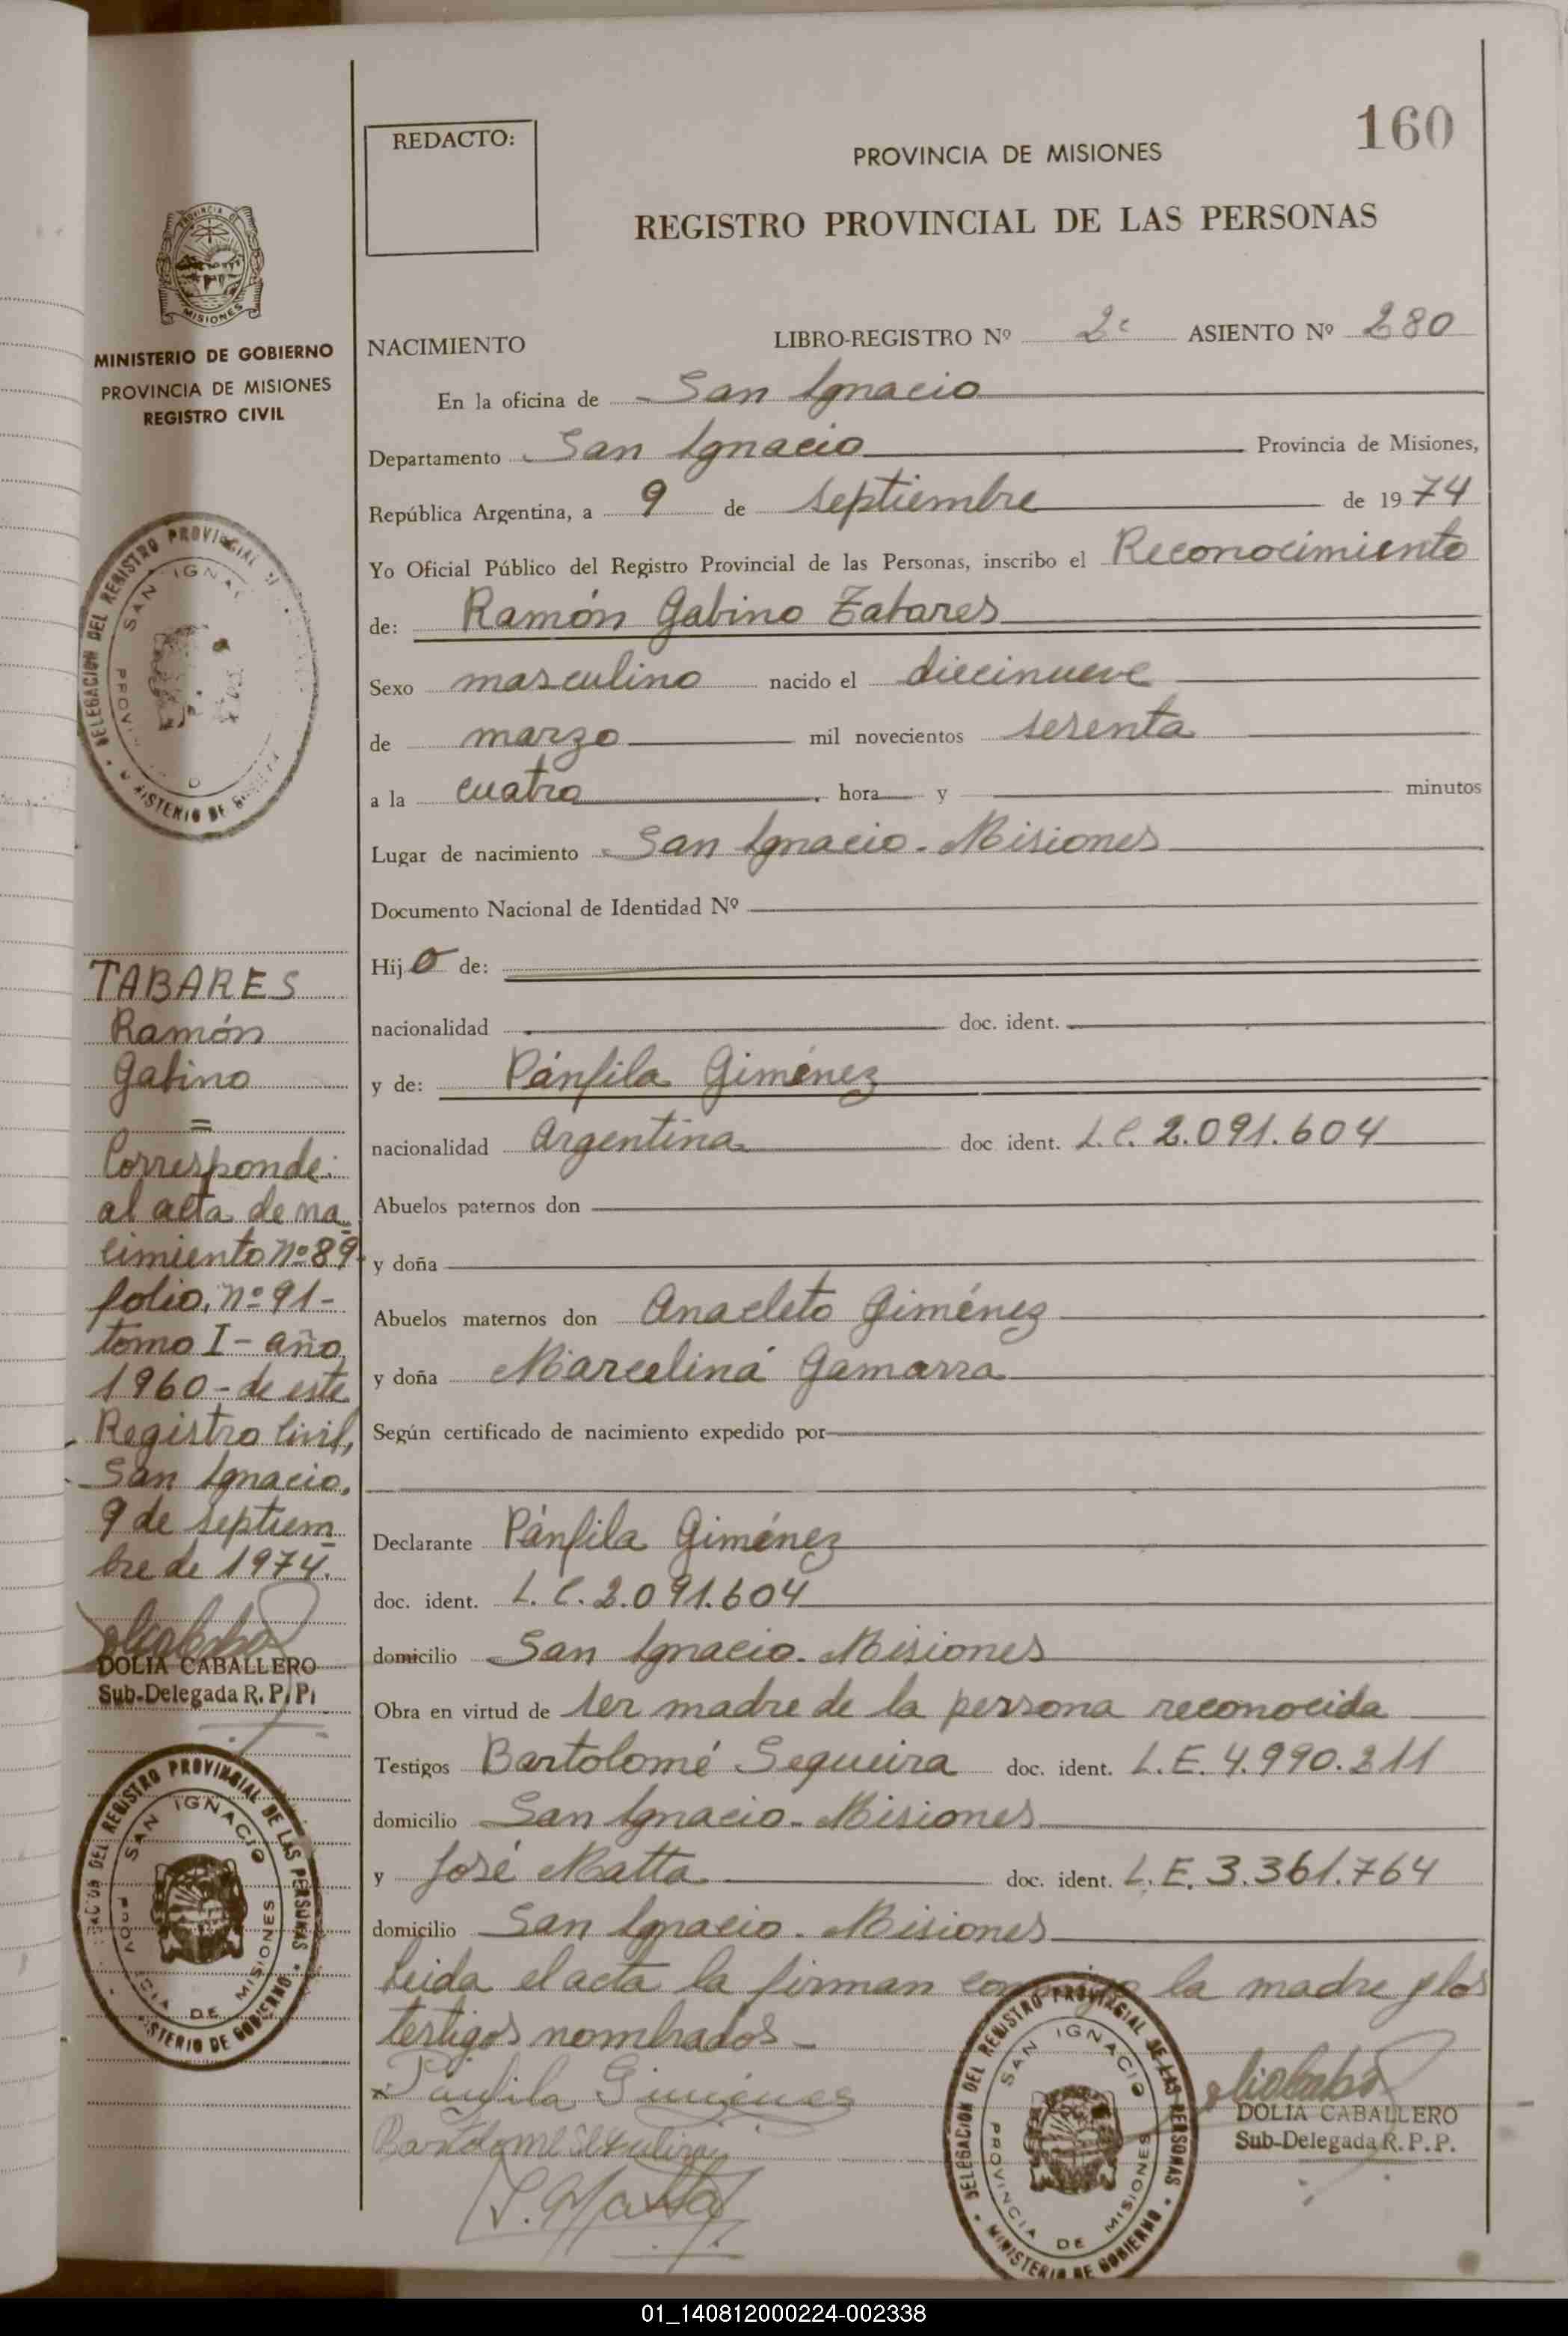 160
REDACTO:
PROVINCIA DE MISIONES
REGISTRO PROVINCIAL DE LAS PERSONAS
MISIONES
MINISTERIO DE GOBIERNO
PROVINCIA DE MISIONES
REGISTRO CIVIL
NACIMIENTO LIBRO-REGISTRO Nº 2º ASIENTO Nº 280
En la oficina de San Ignacio
Departamento San Ignacio Provincia de Misiones,
República Argentina, a 9 de septiembre de 1974
Yo Oficial Público del Registro Provincial de las Personas, inscribo el Reconocimiento
de: Ramón Gabino Tabares
Sexo masculino nacido el diecinueve
de marzo mil novecientos sesenta
a la cuatro hora y minutos
Lugar de nacimiento San Ignacio - Misiones
Documento Nacional de Identidad Nº
Hijo de:
nacionalidad doc. ident.
y de: Pánfila Giménez
nacionalidad Argentina doc ident. L.C. 2.091.604
Abuelos paternos don
y doña
Abuelos maternos don Anacleto Giménez
y doña Marcelina Gamarra
Según certificado de nacimiento expedido por
Declarante Pánfila Giménez
doc. ident. L.C. 2.091.604
domicilio San Ignacio - Misiones
Obra en virtud de ser madre de la persona reconocida
Testigos Bartolomé Sequeira doc. ident. L.E. 4.990.211
domicilio San Ignacio - Misiones
y José Matta doc. ident. L.E. 3.361.764
domicilio San Ignacio - Misiones
Leida el acta la firman conmigo la madre y los
testigos nombrados -
Pánfila Gimenes
Bartolome Sequeira
J. Matta
DOLIA CABALLERO
Sub-Delegada R. P. P.
DELEGACION DEL REGISTRO PROVINCIAL DE LAS PERSONAS
SAN IGNACIO
PROVINCIA DE MISIONES
MINISTERIO DE GOBIERNO
DELEGACION DEL REGISTRO PROVINCIAL
SAN IGNAC
TABARES
Ramón
Gabino
=
Corresponde:
al acta de na
cimiento nº 89
folio, nº 91 -
tomo I - año
1960 - de este
Registro Civil,
San Ignacio,
9 de septiem
bre de 1974.
DOLIA CABALLERO
Sub-Delegada R. P. P.
REGISTRO PROVINCIAL DE LAS PERSONAS
SAN IGNACIO
DE MISIONES
DE GOBIERNO
01_140812000224-002338